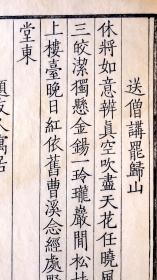 送僧講罷歸山
休將如意辨真空吹盡天花任曉風
三皎潔獨懸金錫一玲瓏巖間松
上樓臺晚日紅依舊曹溪念經處
堂東